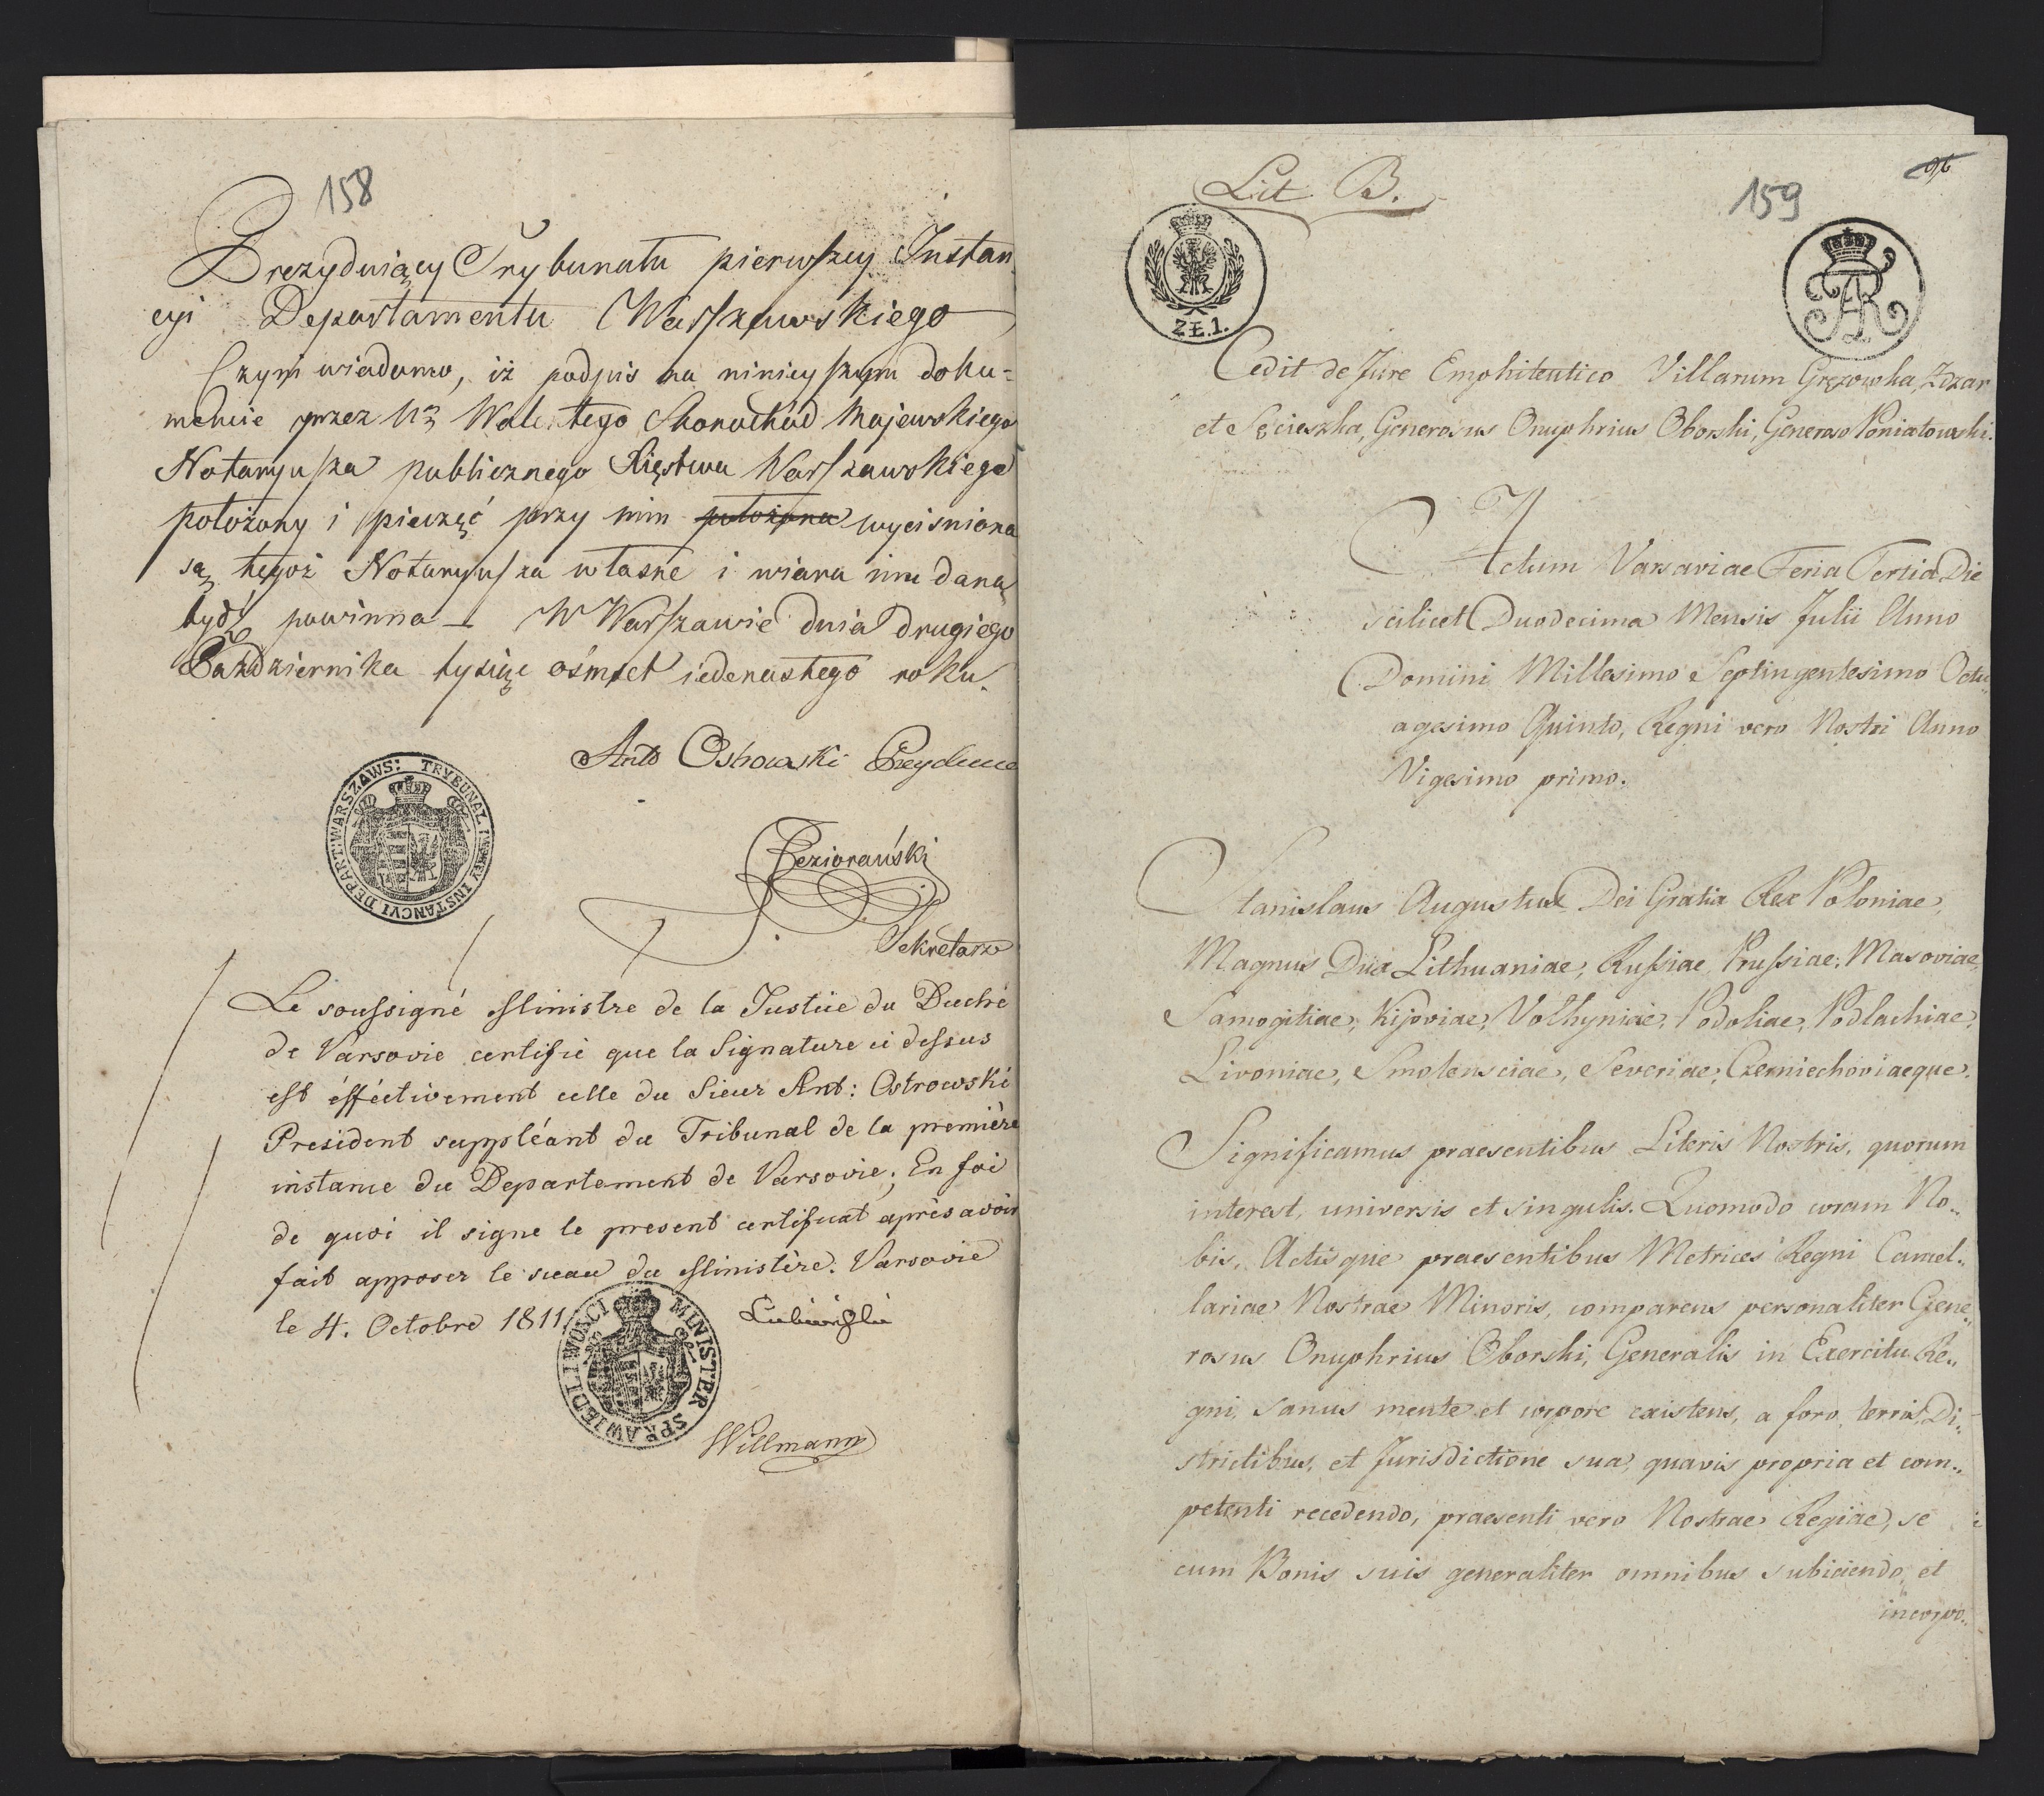 158
Prezyduiący Trybunatu pierwszey Instan
cyi Departamentu Warszawskiego
Czyni wiadomo, iż podpis na ninieyszym doku=
mencie przez Ur Walentego Skorochod Majewskiego
Notaryusza publicznego Xięstwa Warszawskiego
położony i pieczęć przy nim położona wyciśniona
są tegoż Notaryusza własne i wiara im dana
bydź powinna – W Warszawie dnia drugiego
Października tysiąc ośmset iedenastego roku.
Ant Ostrowski
TRYBUNAL I INSTANCYI DEPART: WARSZAWS:
Jeziorański
Sekretarz
Le soussigné Ministre de la Justice du Duché
de Varsovie certifie que la Signature ci dessus
est éfféctivement celle du Sieur Ant: Ostrowski
President suppléant du Tribunal de la première
instance du Departement de Varsovie; En foi
de quoi il signe le present certificat après avoir
fait apposer le sceau du Ministère. Varsovie
le 4. Octobre 1811
MINISTER SPRAWIEDLIWOSCI
Willmann
Lit. B.
159
96
ZŁ.1.
Cedit de Jure Emphiteutico Villarum Gręzowka, Zdzar
et Scieszka, Generosus Onuphrius Oborski, Generoso Poniatowski.
Actum Varsaviae Feria Tertia Die
scilicet Duodecima Mensis Julii Anno
Domini Millesimo Septingentesimo Octu
agesimo Quinto, Regni vero Nostri Anno
Vigesimo primo.
Stanislaus Augustus Dei Gratia Rex Poloniae,
Magnus Dux Lithuaniae, Russiae, Prussiae, Masoviae,
Samogitiae, Kijoviae, Volhyniae, Podoliae, Podlachiae,
Livoniae, Smolensciae, Severiae, Czerniechoviaeque.
Significamus praesentibus Literis Nostris, quorum
interest, universis et singulis. Quomodo coram No„
bis, Actisque praesentibus Metrices Regni Cancel„
lariae Nostrae Minoris, comparens personaliter Gene„
rosus Onuphrius Oborski, Generalis in Exercitu Re„
gni, sanus mente et corpore existens, a foro, terris, Di„
strictibus, et Jurisdictione sua, quavis propria et com„
petenti recedendo, praesenti vero Nostrae Regiae, se
cum Bonis suis generaliter omnibus subiiciendo, et
incorpo„